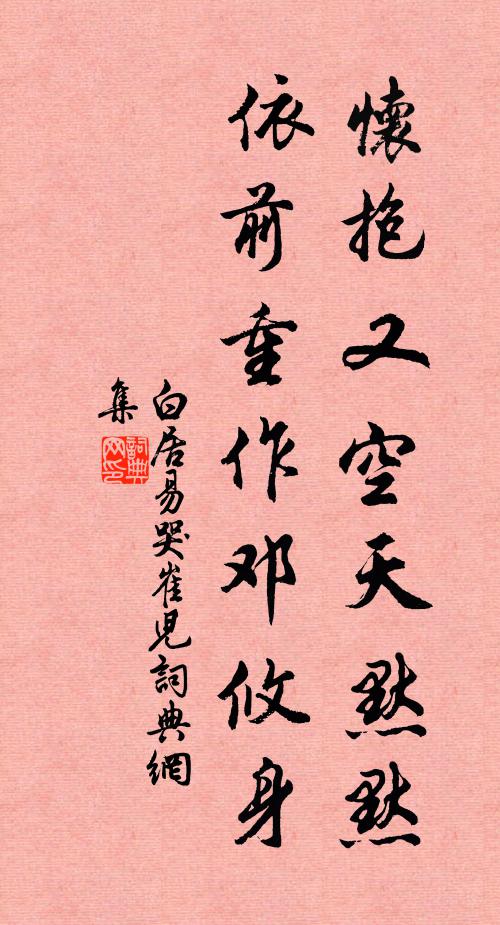 懷抱又空天默默
依前重作邓攸身
白居易哭崔児詞典網
集
詞典网印